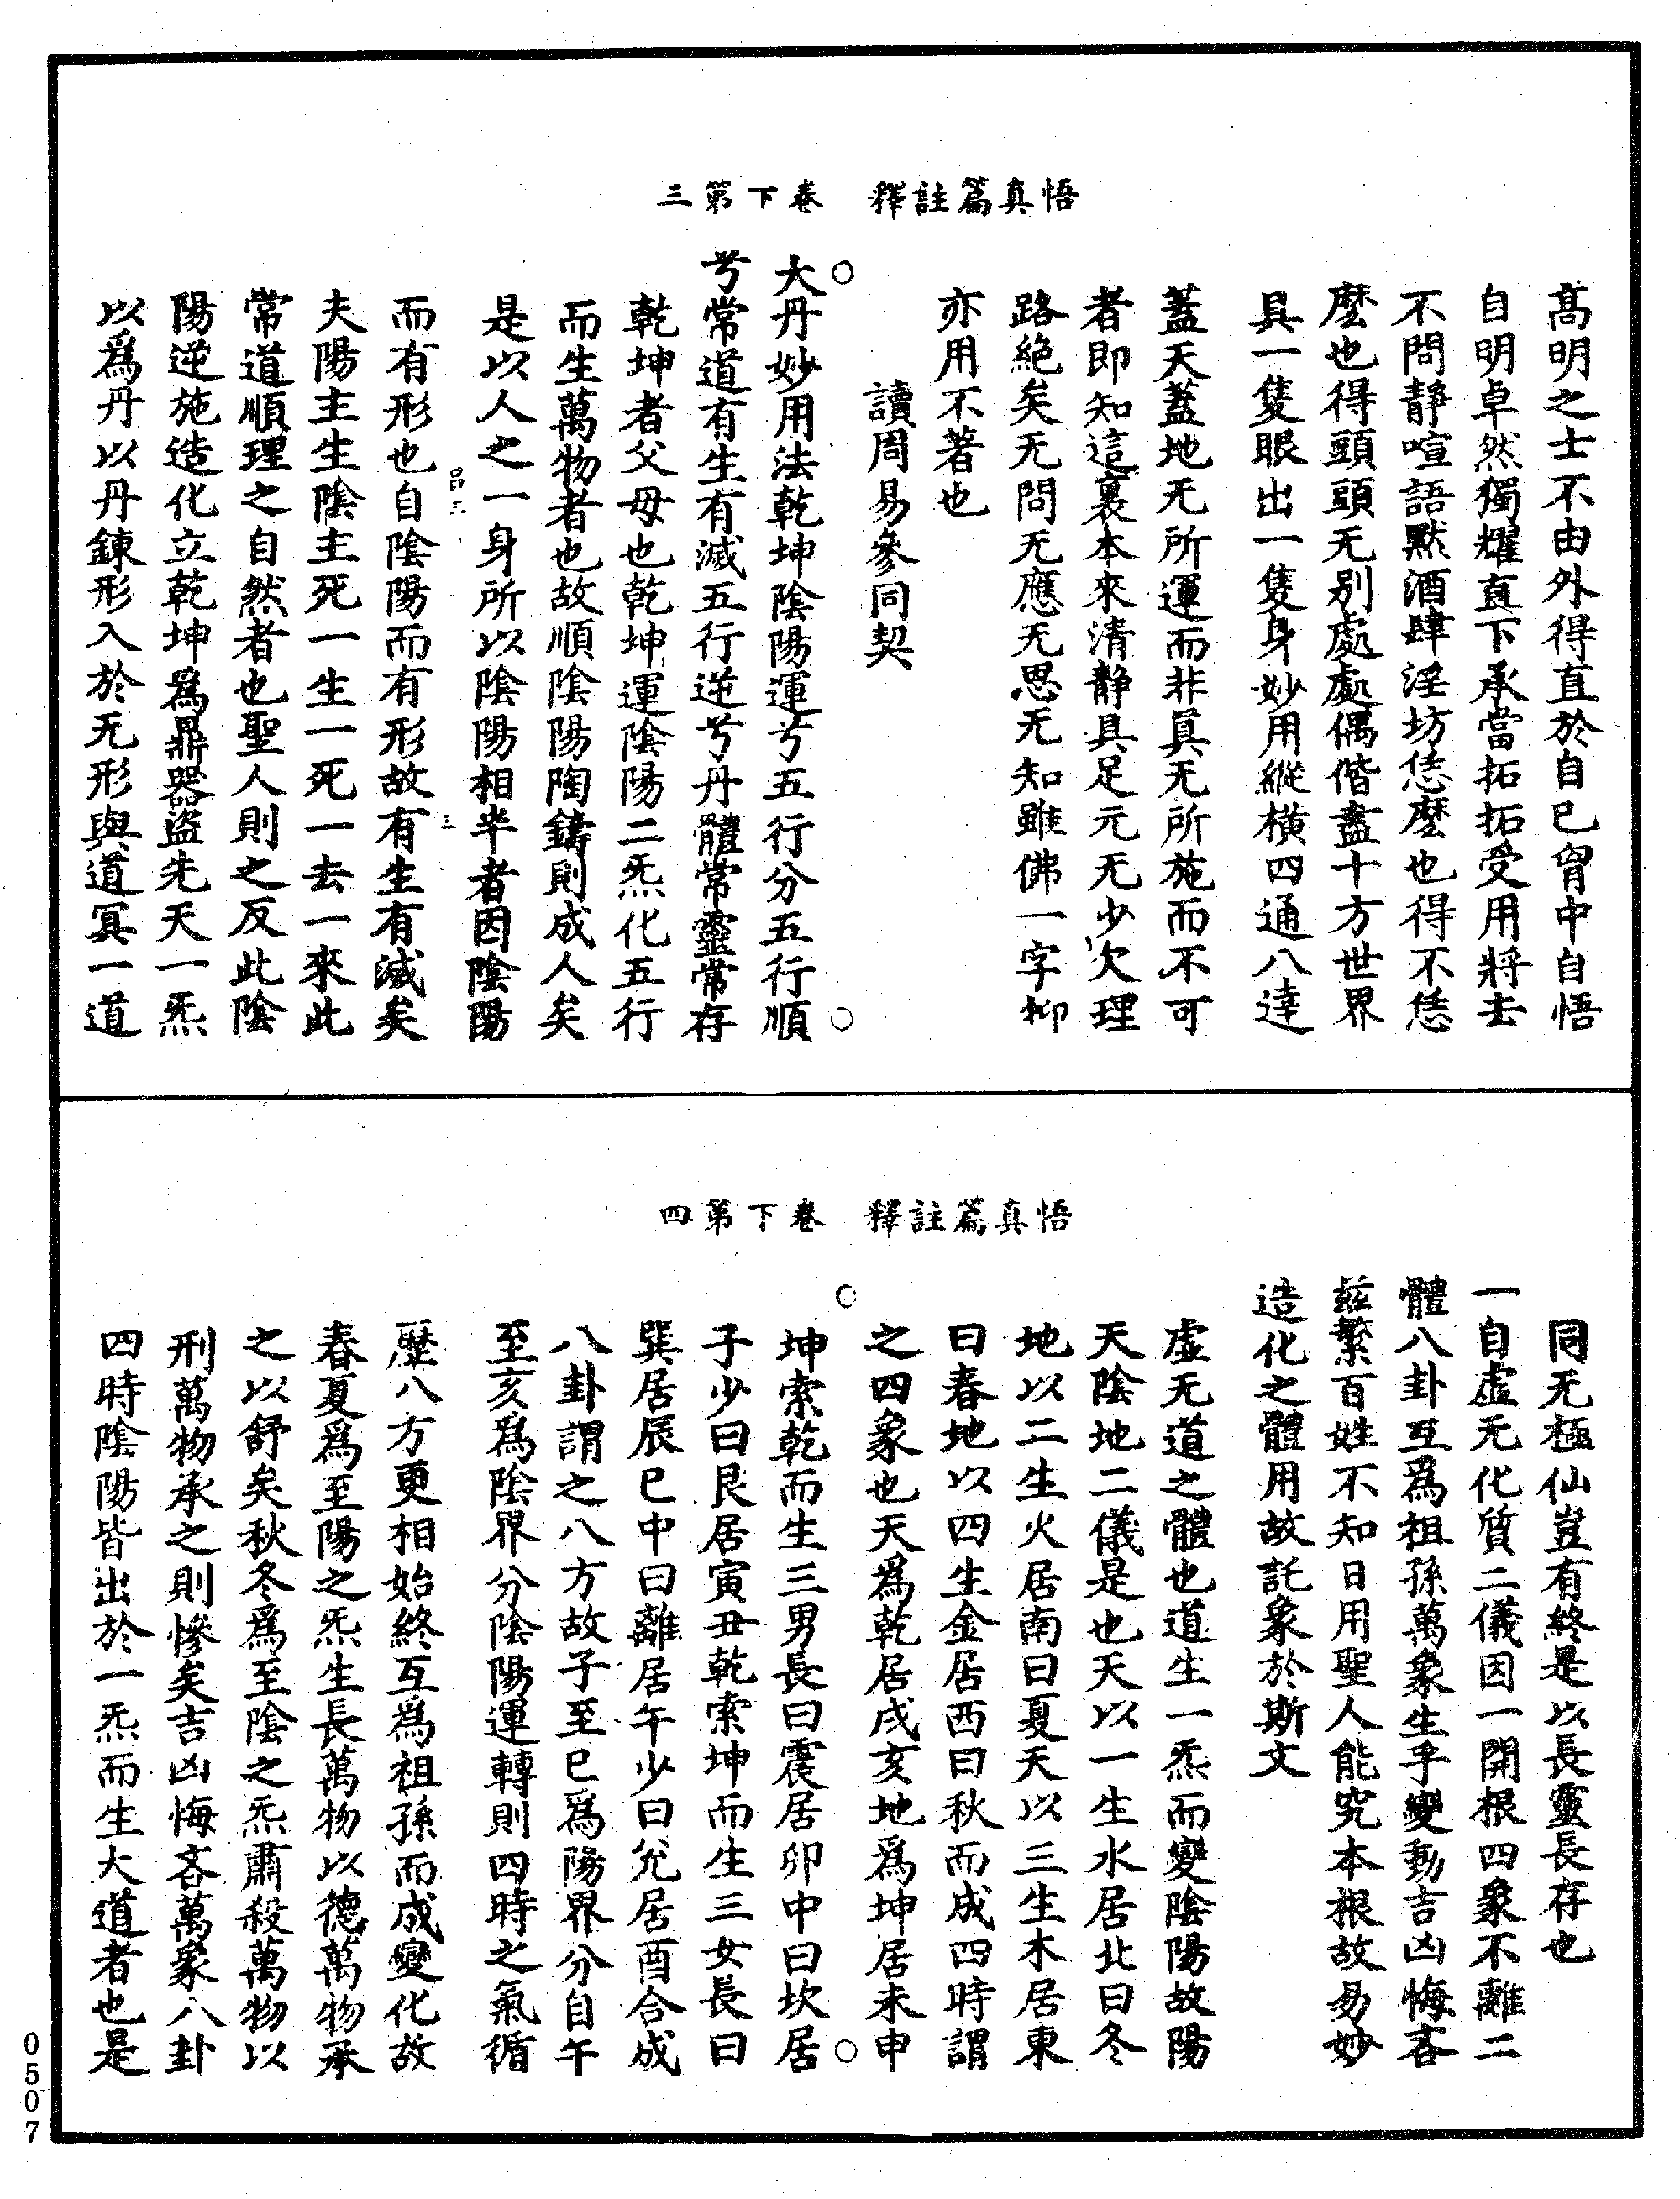 悟真篇註釋　卷下第三
高明之士不由外得直於自已胷中自悟
自明卓然獨耀直下承當拈拈受用將去
不問靜喧語默酒肆淫坊恁麼也得不恁
麼也得頭頭无別處處偶偕盡十方世界
具一隻眼出一隻身妙用縱橫四通八達
蓋天蓋地无所運而非眞无所施而不可
者即知這裏本來清靜具足元无少欠理
路絕矣无問无應无思无知雖佛一字抑
亦用不著也
讀周易參同契
大丹妙用法乾坤陰陽運兮五行分五行順
兮常道有生有滅五行逆兮丹體常靈常存
乾坤者父母也乾坤運陰陽二炁化五行
而生萬物者也故順陰陽陶鑄則成人矣
是以人之一身所以陰陽相半者因陰陽
呂三　三
而有形也自陰陽而有形故有生有滅矣
夫陽主生陰主死一生一死一去一來此
常道順理之自然者也聖人則之反此陰
陽逆施造化立乾坤爲鼎器盜先天一炁
以爲丹以丹鍊形入於无形與道冥一道
悟真篇註釋　卷下第四
同无極仙豈有終是以長靈長存也
一自虛无化質二儀因一開根四象不離二
體八卦互爲祖孫萬象生乎變動吉凶悔吝
茲繁百姓不知日用聖人能究本根故易妙
造化之體用故託象於斯文
虛无道之體也道生一炁而變陰陽故陽
天陰地二儀是也天以一生水居北曰冬
地以二生火居南曰夏天以三生木居東
曰春地以四生金居西曰秋而成四時謂
之四象也天爲乾居戌亥地爲坤居未申
坤索乾而生三男長曰震居卯中曰坎居
子少曰艮居寅丑乾索坤而生三女長曰
巽居辰巳中曰離居午少曰兊居酉合成
八卦謂之八方故子至巳爲陽界分自午
至亥爲陰界分陰陽運轉則四時之氣循
歷八方更相始終互爲祖孫而成變化故
春夏爲至陽之炁生長萬物以德萬物承
之以舒矣秋冬爲至陰之炁肅殺萬物以
刑萬物承之則慘矣吉凶悔吝萬象八卦
四時陰陽皆出於一炁而生大道者也是
0507